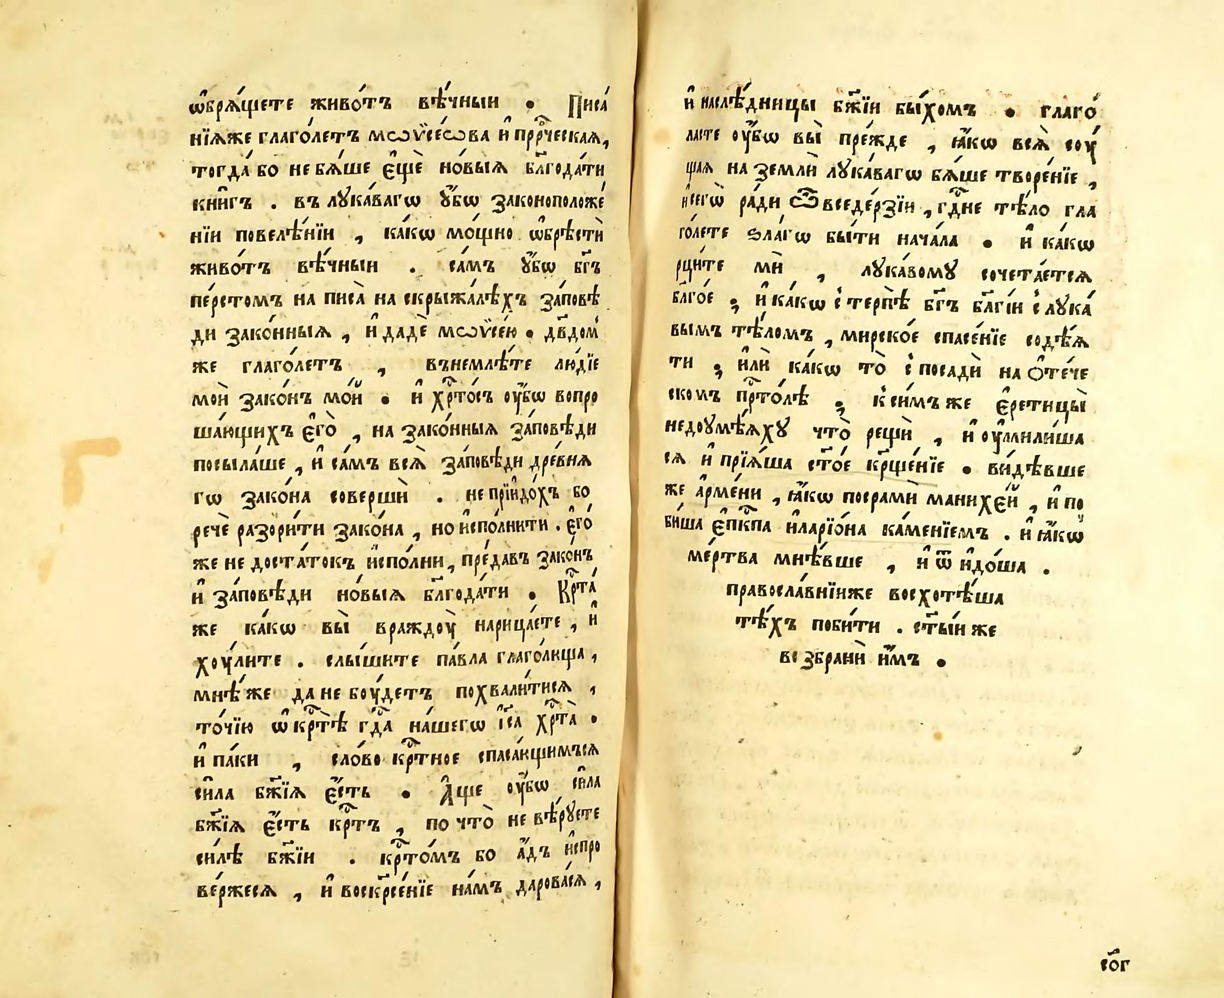 ѡ҆брѧ́щете живо́тъ вѣ́чныи • Писа́
нїѧже глаго́летъ мѡѷсе́ѡва и҆ прⷪ҇рческаѧ,
тогда́ бо не бѧ́ше є҆щѐ но́выѧ бл҃года́ти
кни́гъ . въ лꙋка́вагѡ ᲂу҆́бѡ законоположе́
нїи повелѣ́нїи , ка́кѡ мо́щно ѡ҆брѣстѝ
живо́тъ вѣ́чныи . са́мъ ᲂу҆́бѡ бг҃ъ
пе́рстомъ на писа̀ на скрыжа́лѣхъ за́повѣ
ди зако́нныѧ , и҆ дадѐ мѡѷсе́ю • дв҃дом̾
же глаго́летъ , вънемлѣ́те лю́дїе
мои̑ зако́нъ мо́й • и҆ хрⷭ҇то́съ ᲂу҆́бѡ вопро
ша́ющихъ є҆го̀ , на зако́нныѧ за́повѣди
посыла́ше , и҆ са́мъ всѧ̀ за́повѣди дре́внѧ
гѡ зако́на соверши̑ . не прїидо́хъ бо
речѐ разори́ти зако́на , но и҆спо́лнити . є҆го́
же не доста́токъ и҆спо́лни, преда́въ зако́нъ
и҆ за́повѣди но́выѧ бл҃года́ти • Крⷭ҇та́
же ка́кѡ вы̀ враждоу̀ нарица́ете , и҆
хоу́лите . слы́шите па́вла глаго́люща ,
мнѣ́ же да не боу́детъ похвали́тисѧ ,
то́чїю ѡ҆ крⷭ҇тѣ̀ гдⷭ҇а на́шегѡ і҆с҃а хрⷭ҇та̀ •
и҆ па́ки , сло́во крⷭ҇тное спаса́ющимъсѧ
си́ла бж҃їѧ є҆́сть • А҆́ще ᲂу҆́бѡ си́ла
бж҃їѧ є҆́сть крⷭ҇тъ , по что̀ не вѣ́рꙋете
си́лѣ бж҃їи . крⷭ҇то́мъ бо а҆́дъ и҆спро
ве́ржесѧ , и҆ воскрⷭ҇е́нїе на́мъ дарова́сѧ ,
и҆ наслѣ́дницы бж҃їи бы́хомъ • глаго́
лете ᲂу҆́бѡ вы̀ пре́жде , ꙗ҆́кѡ всѧ̀ соу́
щаѧ на землѝ лꙋка́вагѡ бѧ́ше творе́нїе ,
и҆ сегѡ̀ ра́ди ѿ вседерзїи , гдⷭ҇не тѣ́ло гла
го́лете ѕла́гѡ бы́ти нача́ла • и҆ ка́кѡ
рцы́те мѝ , лꙋка́вомꙋ сочета́етсѧ
бл҃го́е ; и҆ ка́кѡ с терпѣ̀ бг҃ъ бл҃гі́и с лꙋка́
вымъ тѣ́ломъ , мирско́е спасе́нїе содѣ́ѧ
ти ; и҆лѝ ка́кѡ то̀ с посадѝ на ѻ҆те́че
скомъ прⷭ҇то́лѣ ; к си́мъ же є҆рети́цы
недоумѣ́ѧхꙋ что̀ рещѝ , и҆ ᲂу҆мили́ша
сѧ и҆ прїѧ́ша ст҃о́е крⷭ҇ще́нїе • ви́дѣвше
же а҆рме́ни , ꙗ҆́кѡ посрамѝ манихє́й , и҆ по
би́ша є҆пⷭ҇кпа и҆ларїо́на ка́менїемъ . и҆ ꙗ҆́кѡ
ме́ртва мнѣ́вше , и҆ ѿидо́ша .
правосла́внїиже восхотѣ́ша
тѣ́хъ поби́ти . ст҃ы́и же
возбранѝ и҆̀мъ •
со҃г